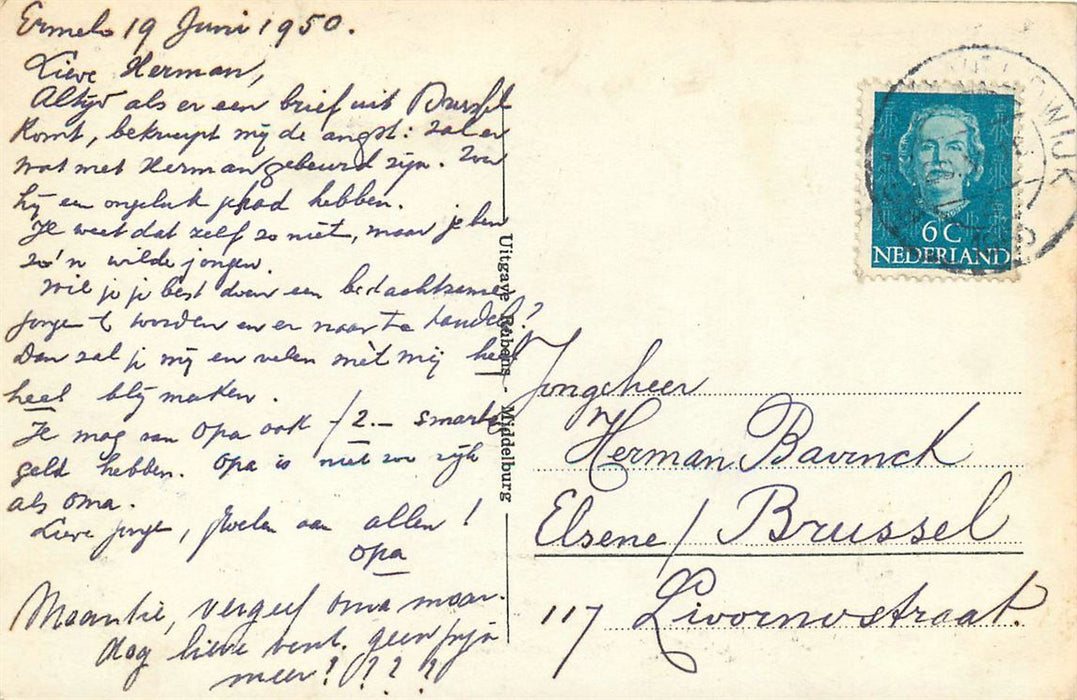 Ermelo 19 Juni 1950.
Lieve Herman,
Altijd als er een brief uit Brussel
komt, bekruipt mij de angst: zal er
wat met Herman gebeurd zijn. Zou
hij een ongeluk gehad hebben.
Je weet dat zelf zo niet, maar je ben
zo'n wilde jongen.
Wil je je best doen een bedachtzame
jonge te worden en er naar te handelen?
Dan zal je mij en velen mèt mij heel
heel blij maken.
Je mag van Opa ook f 2.— smarte
geld hebben. Opa is niet zoo rijk
als oma.
Lieve jonge, groeten aan allen!
Opa
vergeef oma maar.
Dag lieve vent. geen pijn
meer? ? ? ?
Uitgave Rubens - Middelburg
6 C
NEDERLAND
Jongeheer
Herman Bavinck
Elsene / Brussel
117 Livornostraat.